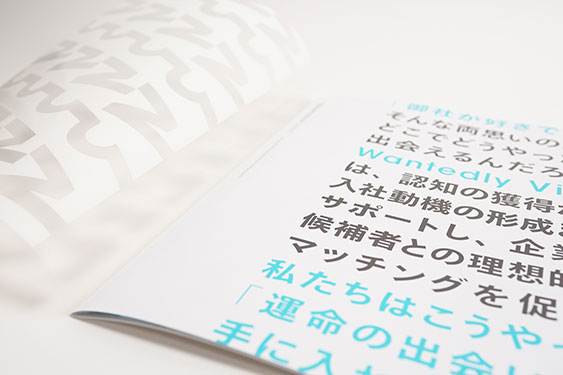 「御社が好きで
そんな両思いの
どこでどうやっ
出会えるんだろ
Wantedly Vi
は、認知の獲得
入社動機の形成
サポートし、企業
候補者との理想的
マッチングを促
私たちはこうやっ
「運命の出会い
手に入れ